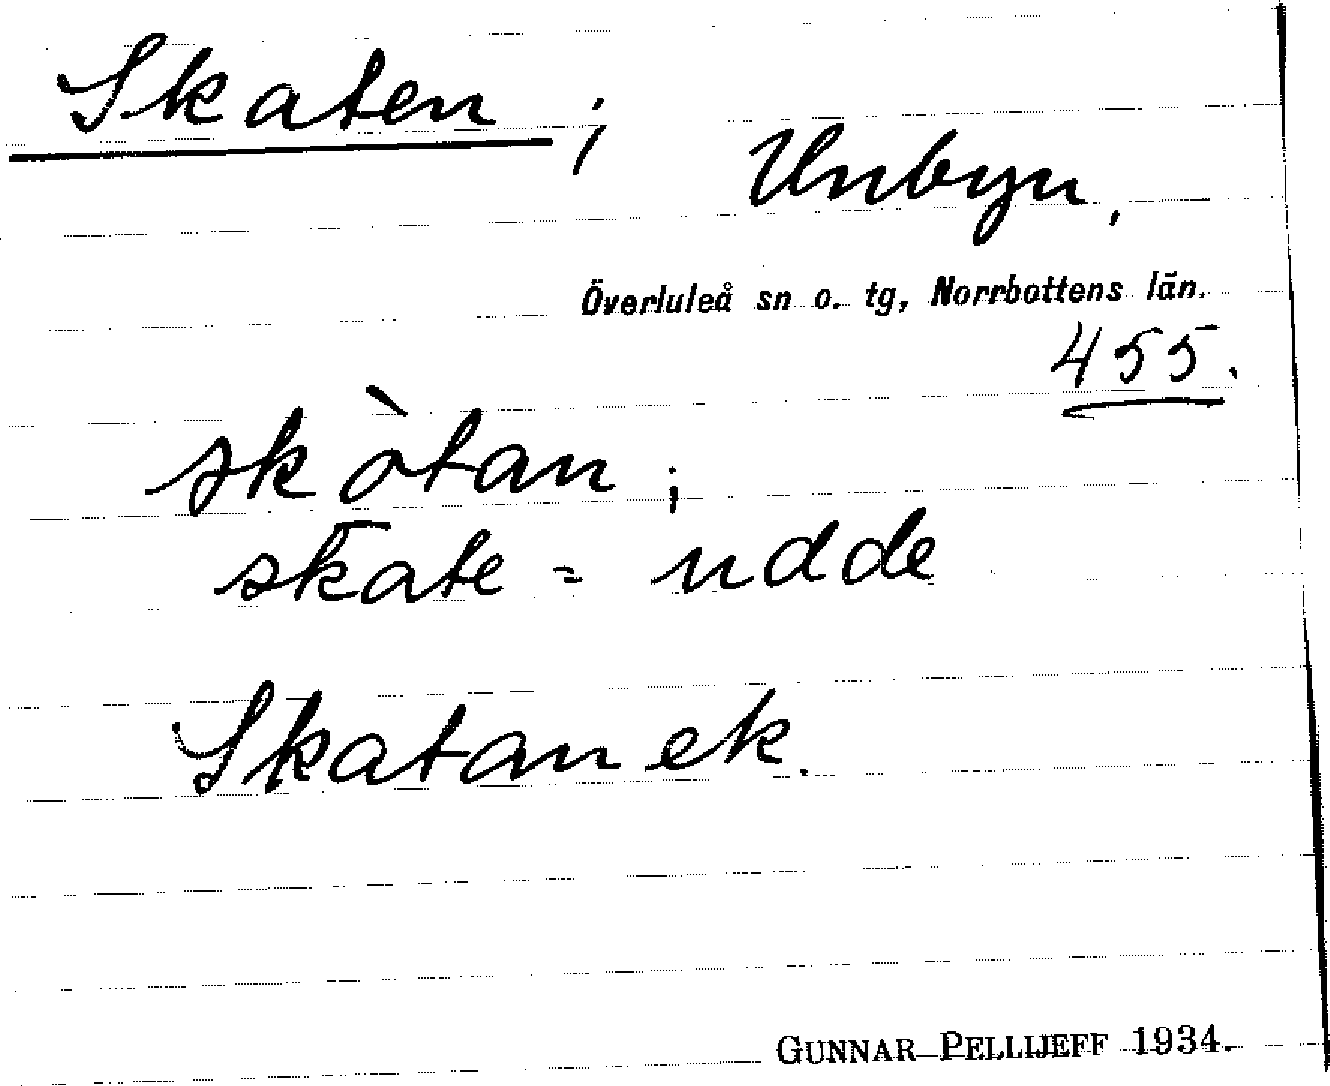 Skaten ;
Unbyn,
Överluleå sn o. tg, Norrbottens län.
455.
skòtan ;
skate = udde
Skatan ek.
GUNNAR PELLIJEFF 1934.